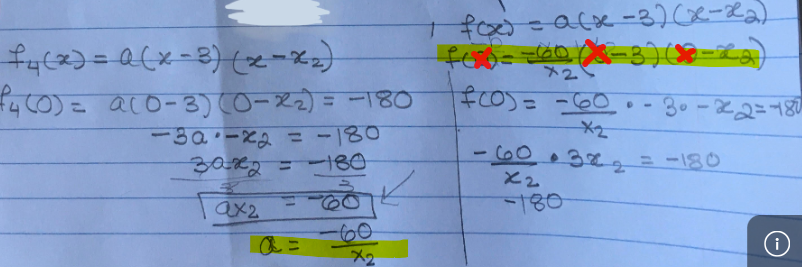 f₄(x) = a(x-3)(x-x₂)
f₄(0) = a(0-3)(0-x₂) = -180
-3a·-x₂ = -180
3ax₂ = -180
3 3
ax₂ = -60
a = -60/x₂
f(x) = a(x-3)(x-x₂)
f( ) = -60/x₂ ( -3)( -x₂)
f(0) = -60/x₂ · -3 · -x₂ = -180
-60/x₂ · 3x₂ = -180
-180